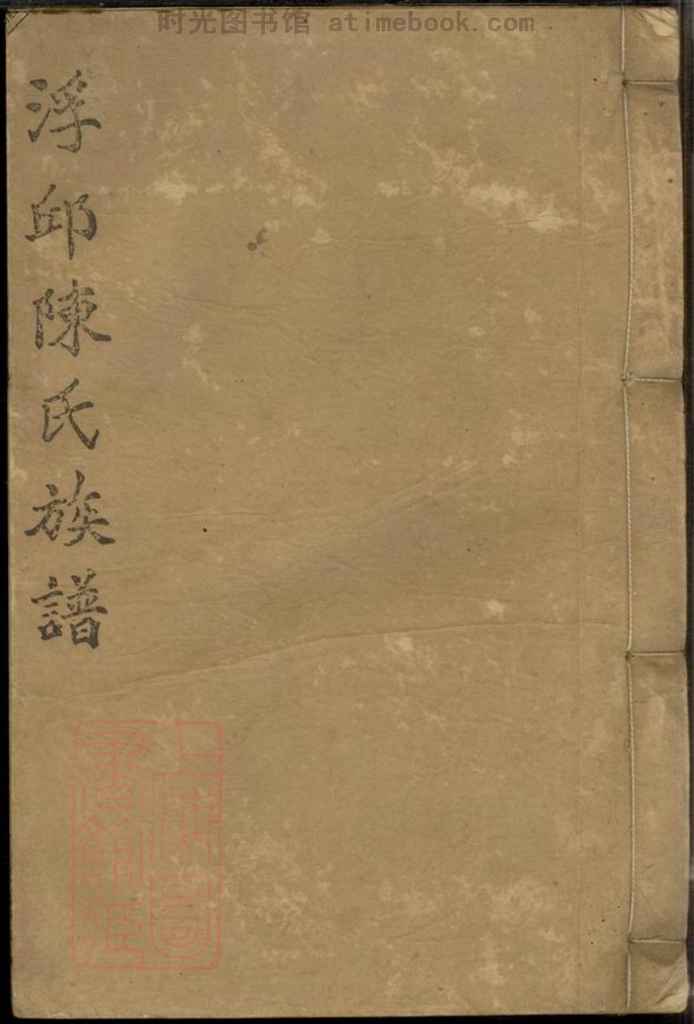 时光图书馆 atimebook.com
浮邱陳氏族譜